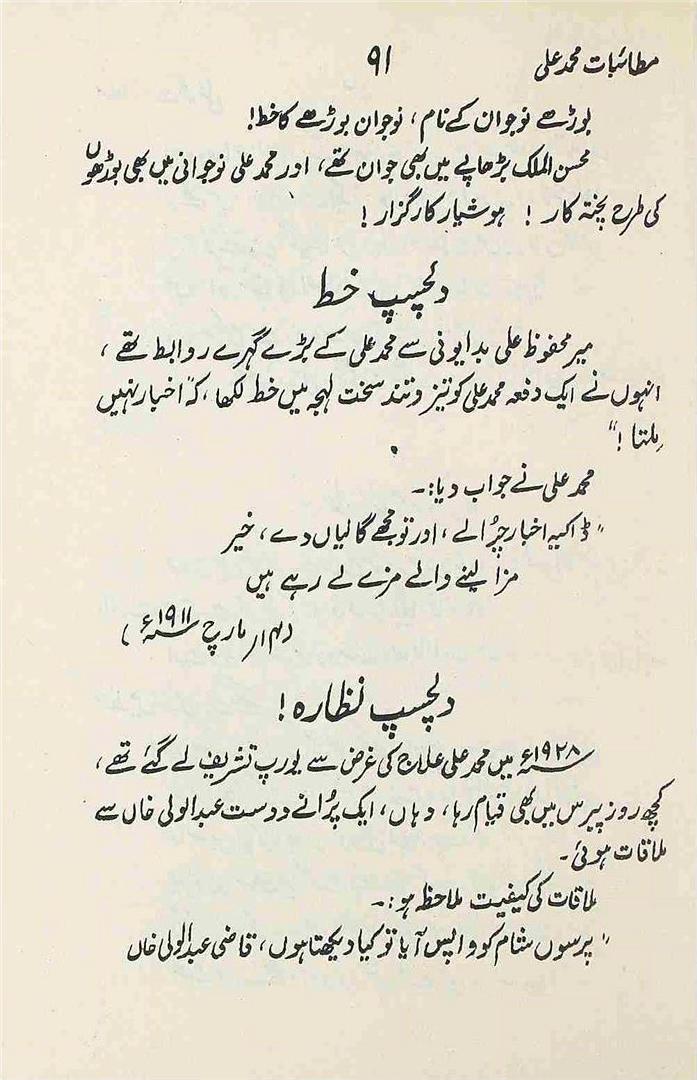 مطائبات محمد علی
۹۱
بوڑھے نوجوان کے نام، نوجوان بوڑھے کا خط!
محسن الملک بڑھاپے میں بھی جوان تھے، اور محمد علی نوجوانی میں بھی بوڑھوں
کی طرح پختہ کار! ہوشیار کارگزار!
دلچسپ خط
میر محفوظ علی بدایونی سے محمد علی کے بڑے گہرے روابط تھے،
انہوں نے ایک دفعہ محمد علی کو تیز و تند سخت لہجہ میں خط لکھا، کہ "اخبار نہیں
ملتا!"
محمد علی نے جواب دیا:۔
"ڈاکیہ اخبار چرالے، اور تو مجھے گالیاں دے، خیر
مزا لینے والے مزے لے رہے ہیں
(۱۴ مارچ ۱۹۱۱ء)
دلچسپ نظارہ!
۱۹۲۸ء میں محمد علی علاج کی غرض سے یورپ تشریف لے گئے تھے،
کچھ روز پیرس میں بھی قیام رہا، وہاں، ایک پرانے دوست عبدالولی خاں سے
ملاقات ہوئی۔
ملاقات کی کیفیت ملاحظہ ہو:۔
"پرسوں شام کو واپس آیا تو کیا دیکھتا ہوں، قاضی عبدالولی خاں